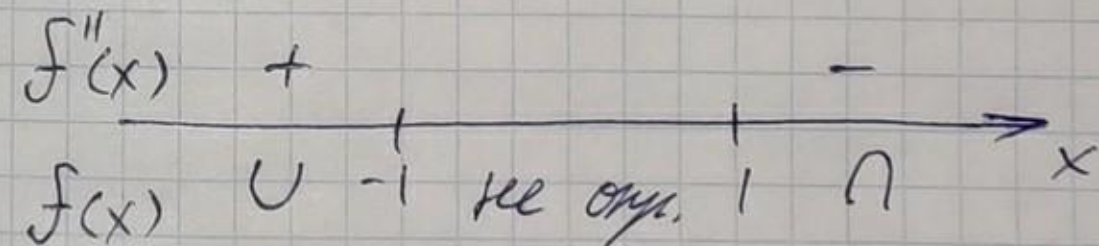 f''(x) + −
x
f(x) ∪ -1 не опр. 1 ∩